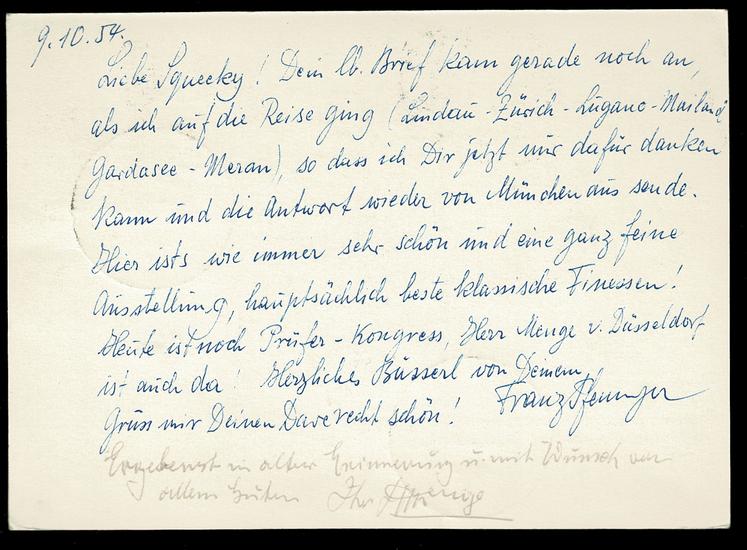 9.10.54.
Liebe Squeeky! Dein lb. Brief kam gerade noch an,
als ich auf die Reise ging (Lindau - Zürich - Lugano - Mailand
Gardasee - Meran), so dass ich Dir jetzt nur dafür danken
kann und die Antwort wieder von München aus sende.
Hier ists wie immer sehr schön und eine ganz feine
Ausstellung, hauptsächlich beste klassische Finessen!
Heute ist noch Prüfer-Kongress, Herr Menge v. Düsseldorf
ist auch da! Herzliches Busserl von Deinem
Gruss mir Deinen Dave recht schön! Franz Pfenninger
Ergebenst in alter Erinnerung u. mit Wunsch von
allem Guten Ihr Menge